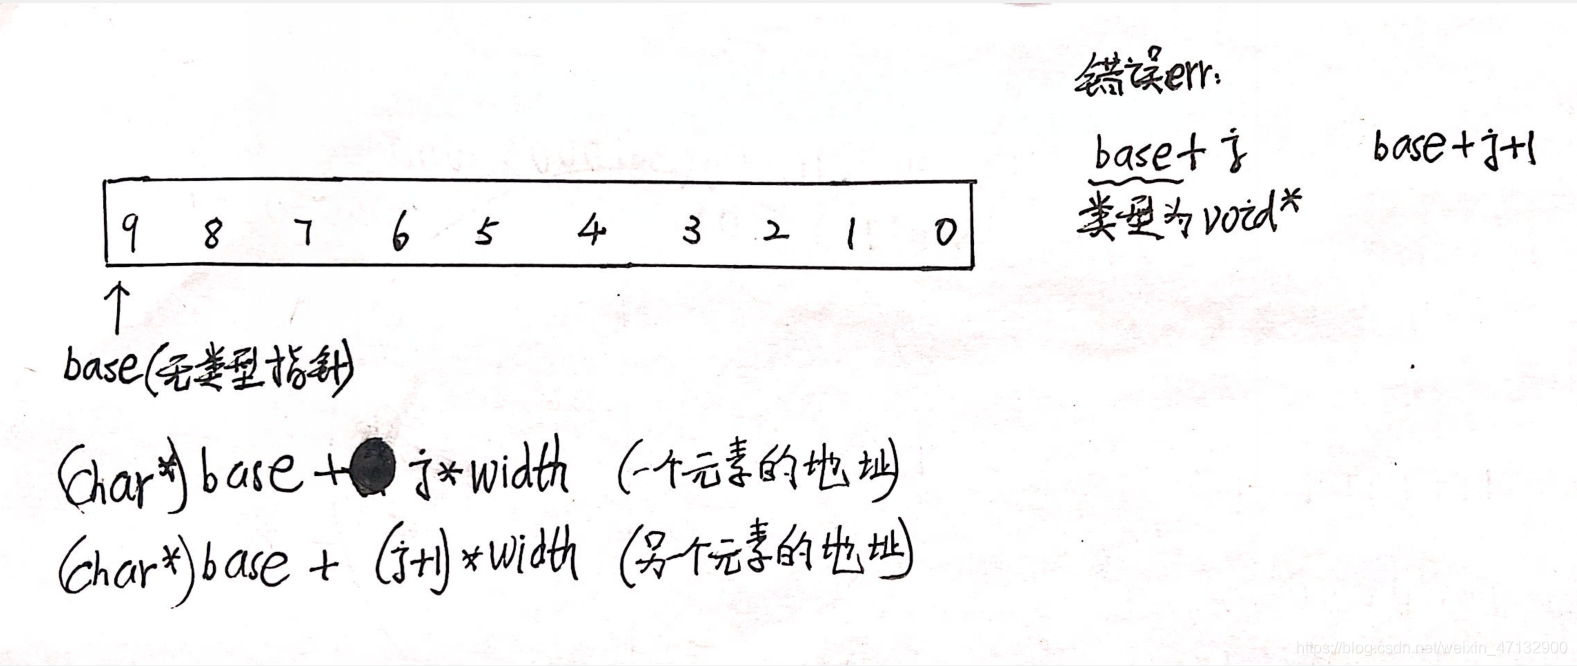 错误err:
base+j base+j+1
类型为void*
9 8 7 6 5 4 3 2 1 0
↑
base(无类型指针)
(char*)base+ j*width (一个元素的地址)
(char*)base + (j+1)*width (另个元素的地址)
https://blog.csdn.net/weixin_47132900